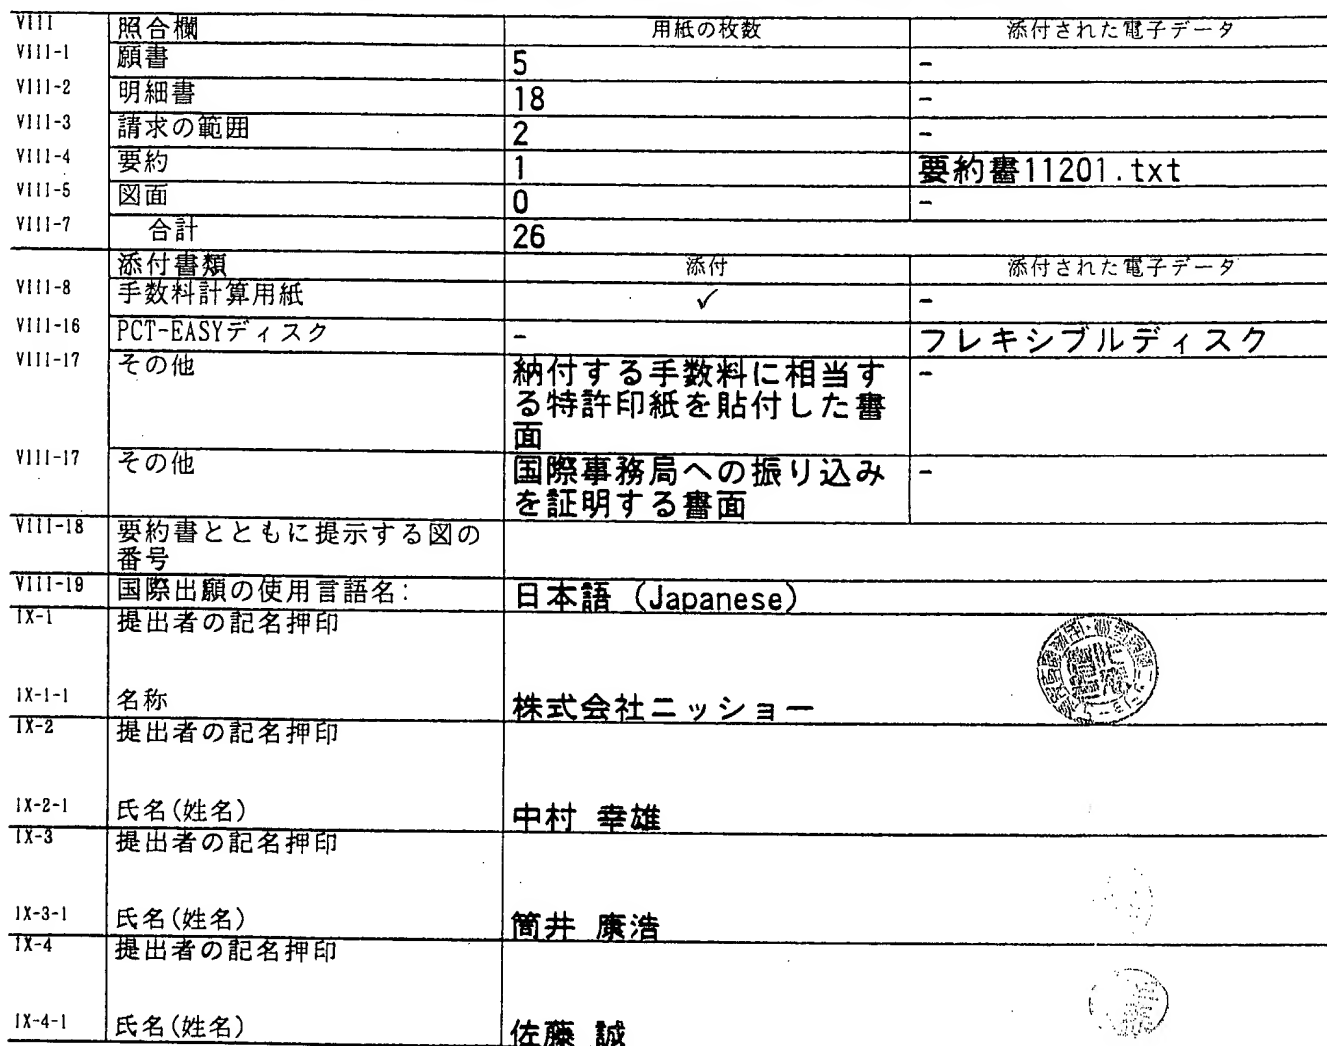 VIII 照合欄 用紙の枚数 添付された電子データ
VIII-1 願書 5 -
VIII-2 明細書 18 -
VIII-3 請求の範囲 2 -
VIII-4 要約 1 要約書11201.txt
VIII-5 図面 0 -
VIII-7 合計 26
添付書類 添付 添付された電子データ
VIII-8 手数料計算用紙 ✓ -
VIII-16 PCT-EASYディスク - フレキシブルディスク
VIII-17 その他 納付する手数料に相当す -
る特許印紙を貼付した書
面
VIII-17 その他 国際事務局への振り込み -
を証明する書面
VIII-18 要約書とともに提示する図の
番号
VIII-19 国際出願の使用言語名: 日本語 (Japanese)
IX-1 提出者の記名押印
IX-1-1 名称 株式会社ニッショー
IX-2 提出者の記名押印
IX-2-1 氏名(姓名) 中村 幸雄
IX-3 提出者の記名押印
IX-3-1 氏名(姓名) 筒井 康浩
IX-4 提出者の記名押印
IX-4-1 氏名(姓名) 佐藤 誠